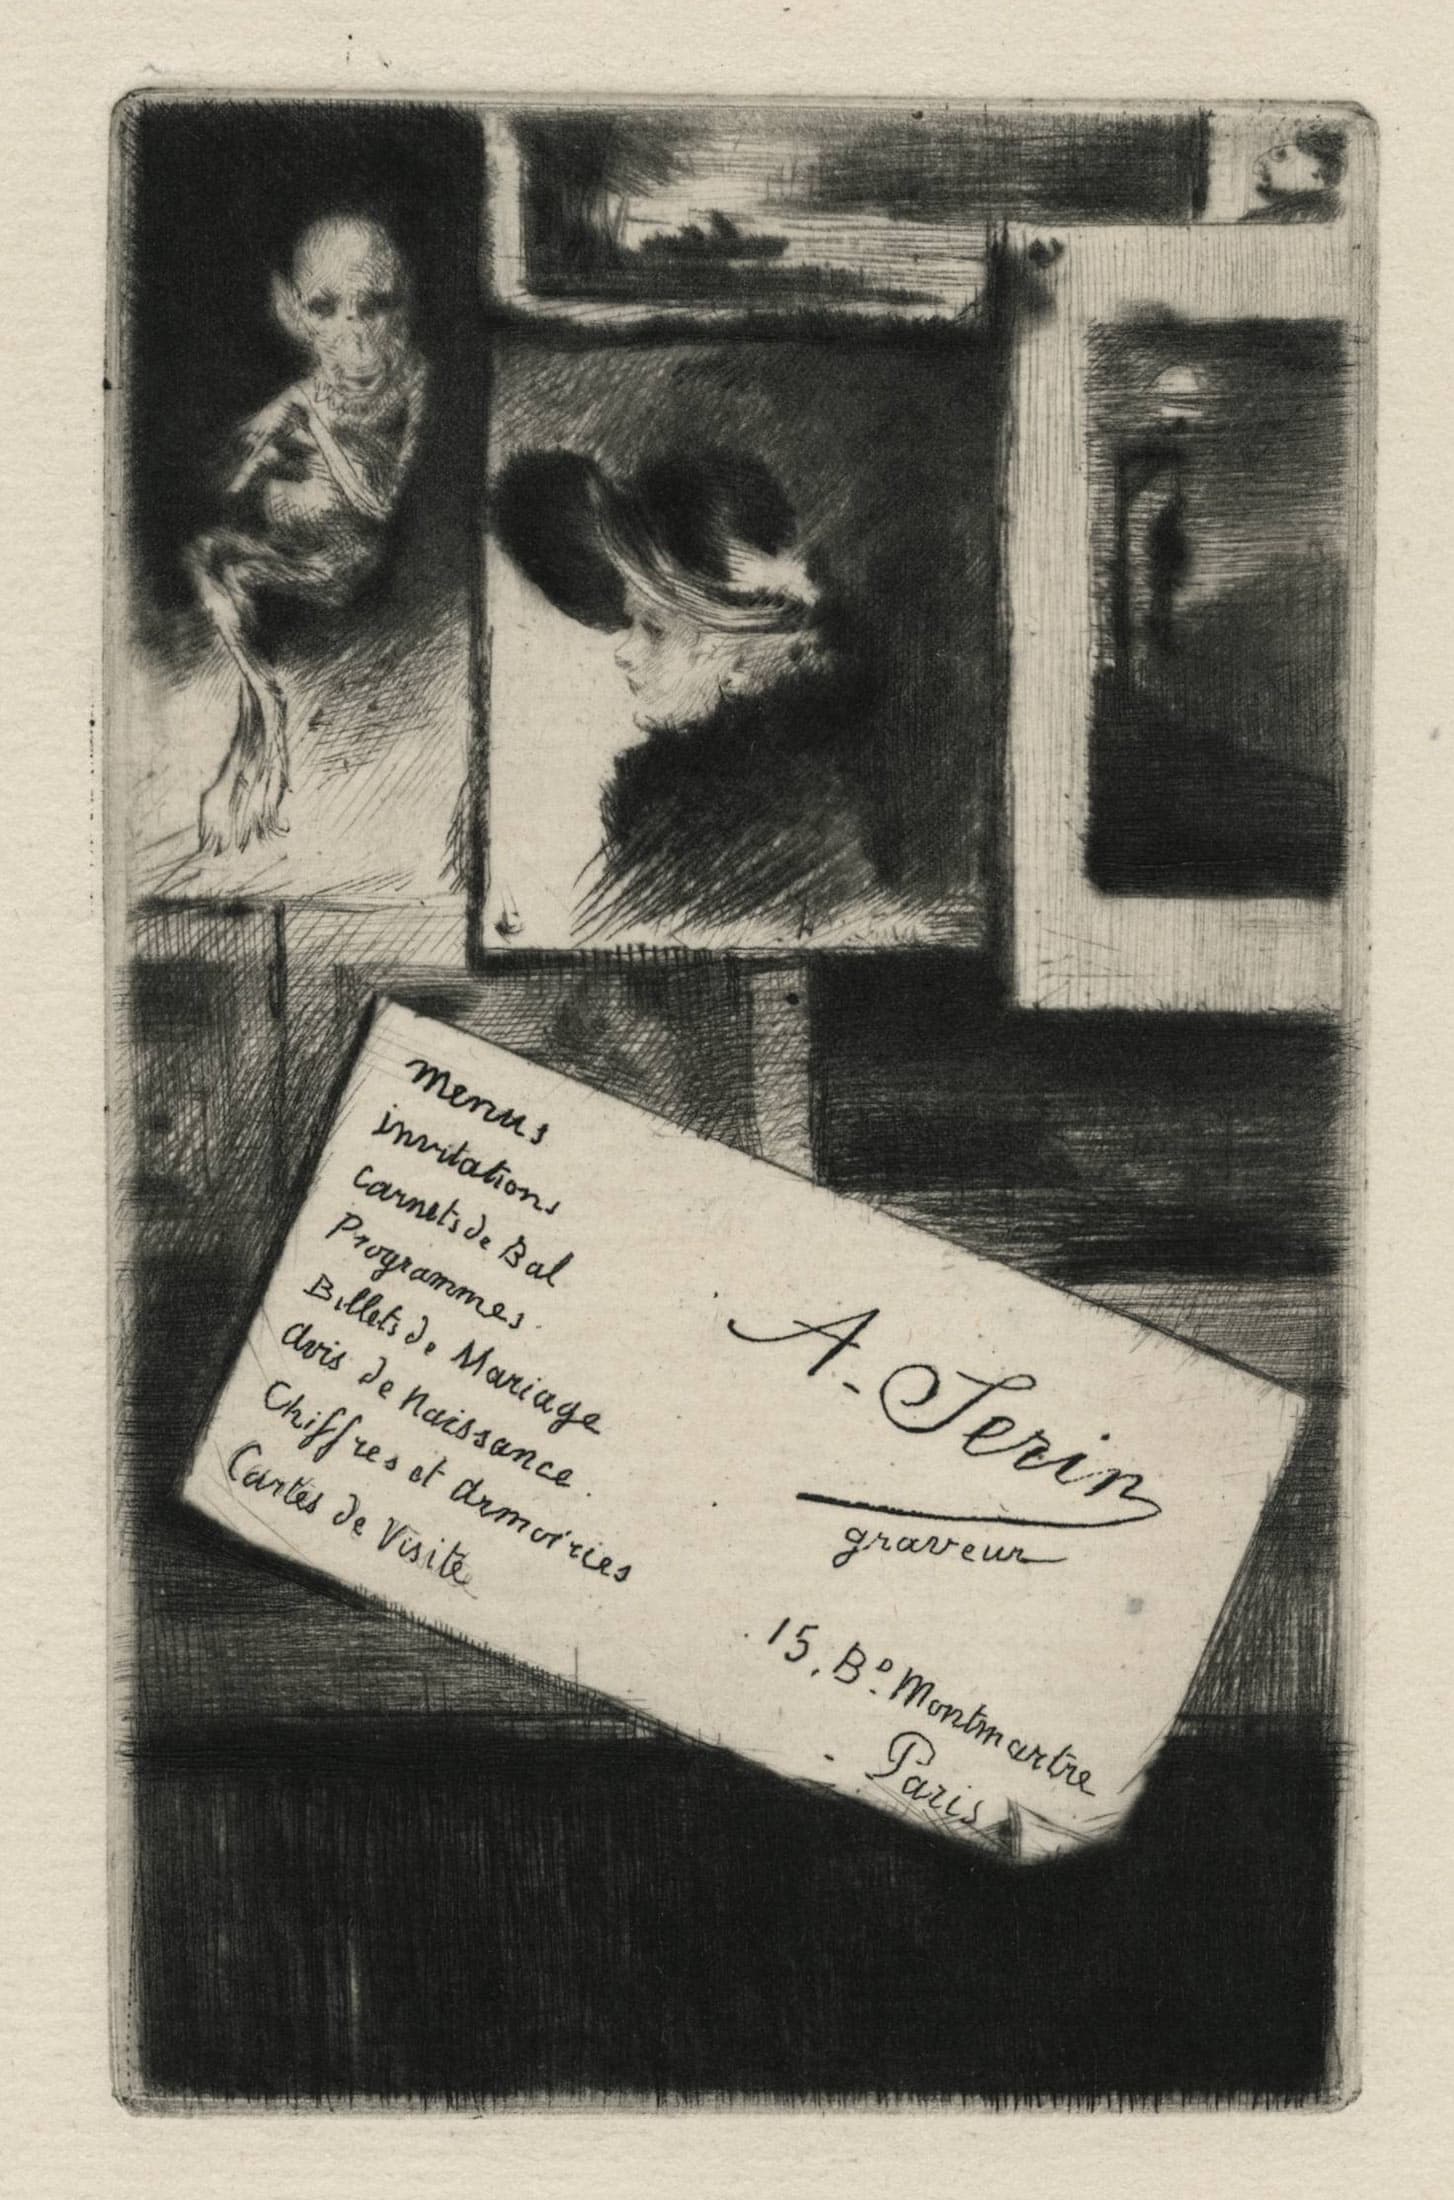 Menus
invitations
Carnets de Bal
Programmes.
Billets de Mariage
Avis de Naissance.
Chiffres et Armoiries
Cartes de Visite
A. Serin
graveur
15, Bd. Montmartre
Paris